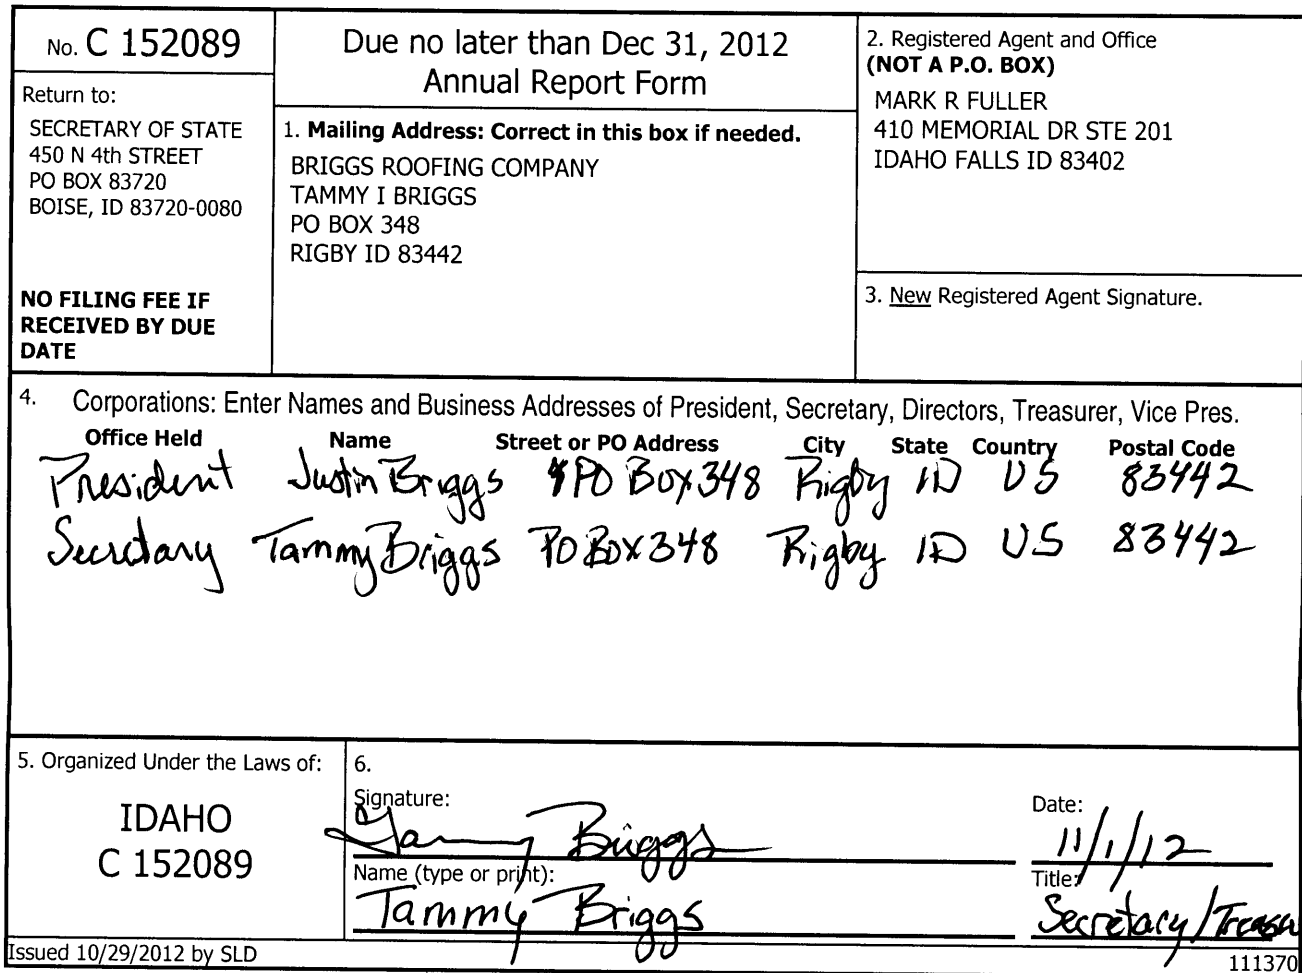 No. C 152089
Return to:
SECRETARY OF STATE
450 N 4th STREET
PO BOX 83720
BOISE, ID 83720-0080
NO FILING FEE IF
RECEIVED BY DUE
DATE
Due no later than Dec 31, 2012
Annual Report Form
1. Mailing Address: Correct in this box if needed.
BRIGGS ROOFING COMPANY
TAMMY I BRIGGS
PO BOX 348
RIGBY ID 83442
2. Registered Agent and Office
(NOT A P.O. BOX)
MARK R FULLER
410 MEMORIAL DR STE 201
IDAHO FALLS ID 83402
3. New Registered Agent Signature.
4. Corporations: Enter Names and Business Addresses of President, Secretary, Directors, Treasurer, Vice Pres.
Office Held Name Street or PO Address City State Country Postal Code
President Justin Briggs PO Box 348 Rigby ID US 83442
Secretary Tammy Briggs PO Box 348 Rigby ID US 83442
5. Organized Under the Laws of:
IDAHO
C 152089
6.
Signature:
Tammy Briggs
Date:
11/1/12
Name (type or print):
Tammy Briggs
Title:
Secretary/Treasu
Issued 10/29/2012 by SLD
111370